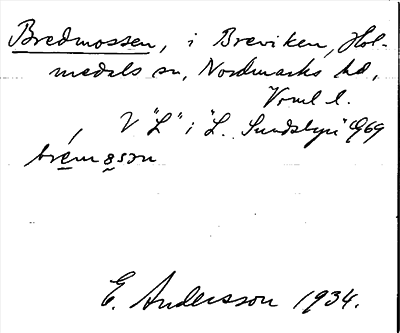 Bredmossen, i Breviken, Hol-
medals sn, Nordmarks hd,
Vrml l.
, V "L" i "L. Sundsbyn" 969
brém əsən
E. Andersson 1934.